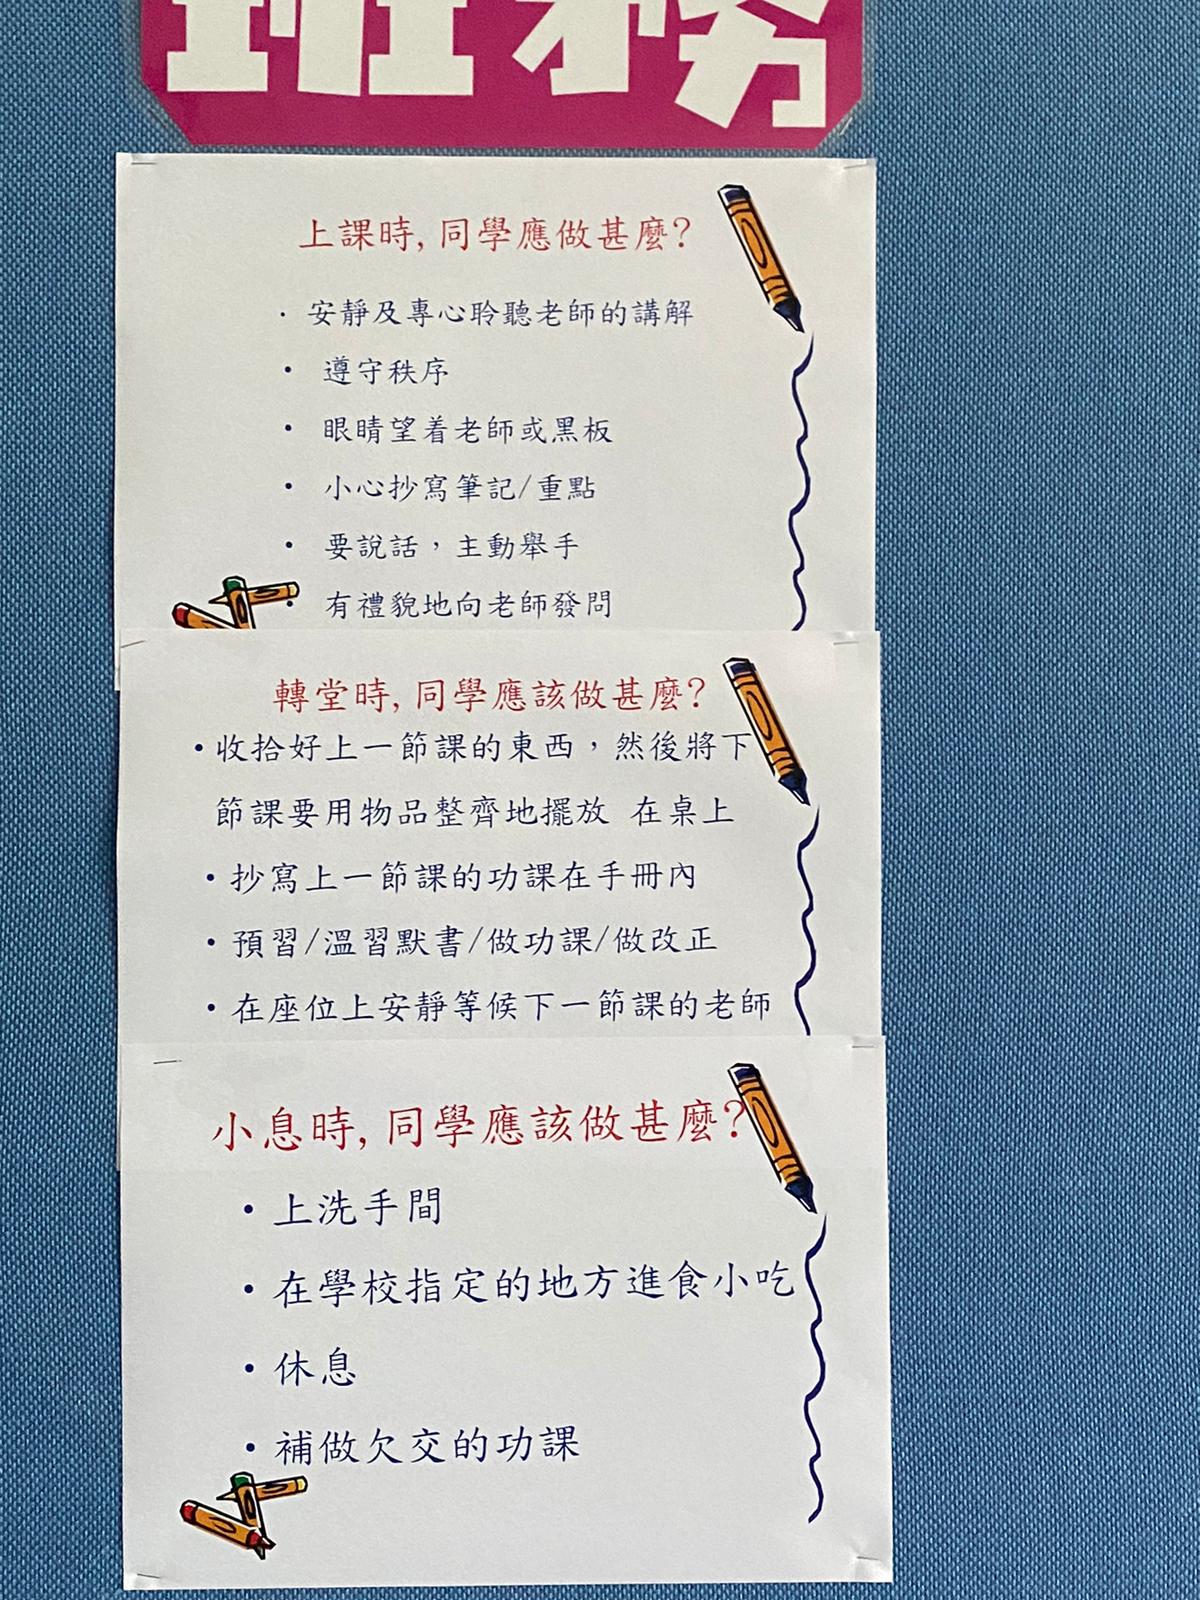 班務
上課時, 同學應做甚麼?
· 安靜及專心聆聽老師的講解
• 遵守秩序
• 眼睛望着老師或黑板
• 小心抄寫筆記/重點
• 要說話，主動舉手
• 有禮貌地向老師發問
轉堂時, 同學應該做甚麼?
• 收拾好上一節課的東西，然後將下
節課要用物品整齊地擺放 在桌上
• 抄寫上一節課的功課在手冊內
• 預習/溫習默書/做功課/做改正
• 在座位上安靜等候下一節課的老師
小息時, 同學應該做甚麼?
• 上洗手間
• 在學校指定的地方進食小吃
• 休息
• 補做欠交的功課